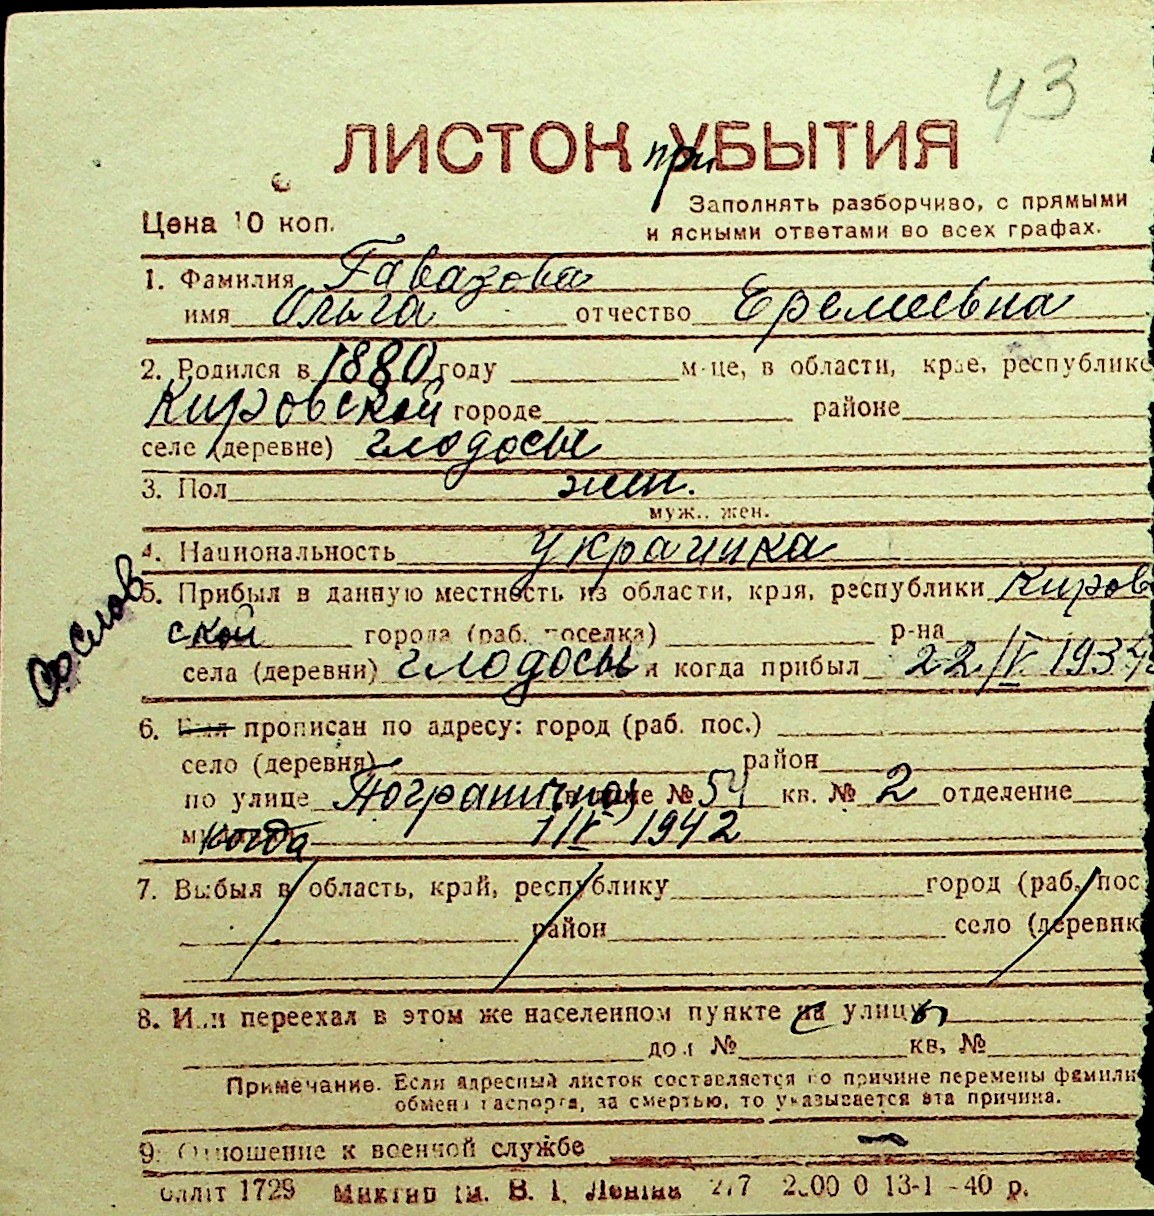 43
ЛИСТОК УБЫТИЯ
при
Цена 10 коп.
Заполнять разборчиво, с прямыми
и ясными ответами во всех графах.
1. Фамилия Гавазова
имя Ольга отчество Еремеевна
2. Родился в 1880 году м-це, в области, крае, республике
Кировской городе районе
селе (деревне) глодосы
3. Пол жен.
муж., жен.
4. Национальность украинка
5. Прибыл в данную местность из области, края, республики Киров
ской города (раб. поселка) р-на
села (деревни) глодосы и когда прибыл 22/IV 193
6. Был прописан по адресу: город (раб. пос.)
село (деревня) район
по улице Пограничной № 54 кв. № 2 отделение
когда 1 IV 1942
7. Выбыл в область, край, республику город (раб. пос
район село (деревня
8. Или переехал в этом же населенном пункте на улицу
дом № кв. №
Примечание. Если адресный листок составляется по причине перемены фамили
обмена паспорта, за смертью, то указывается эта причина.
9. Отношение к военной службе —
1729 им. В. І. Леніна 2/7 13-1-40 р.